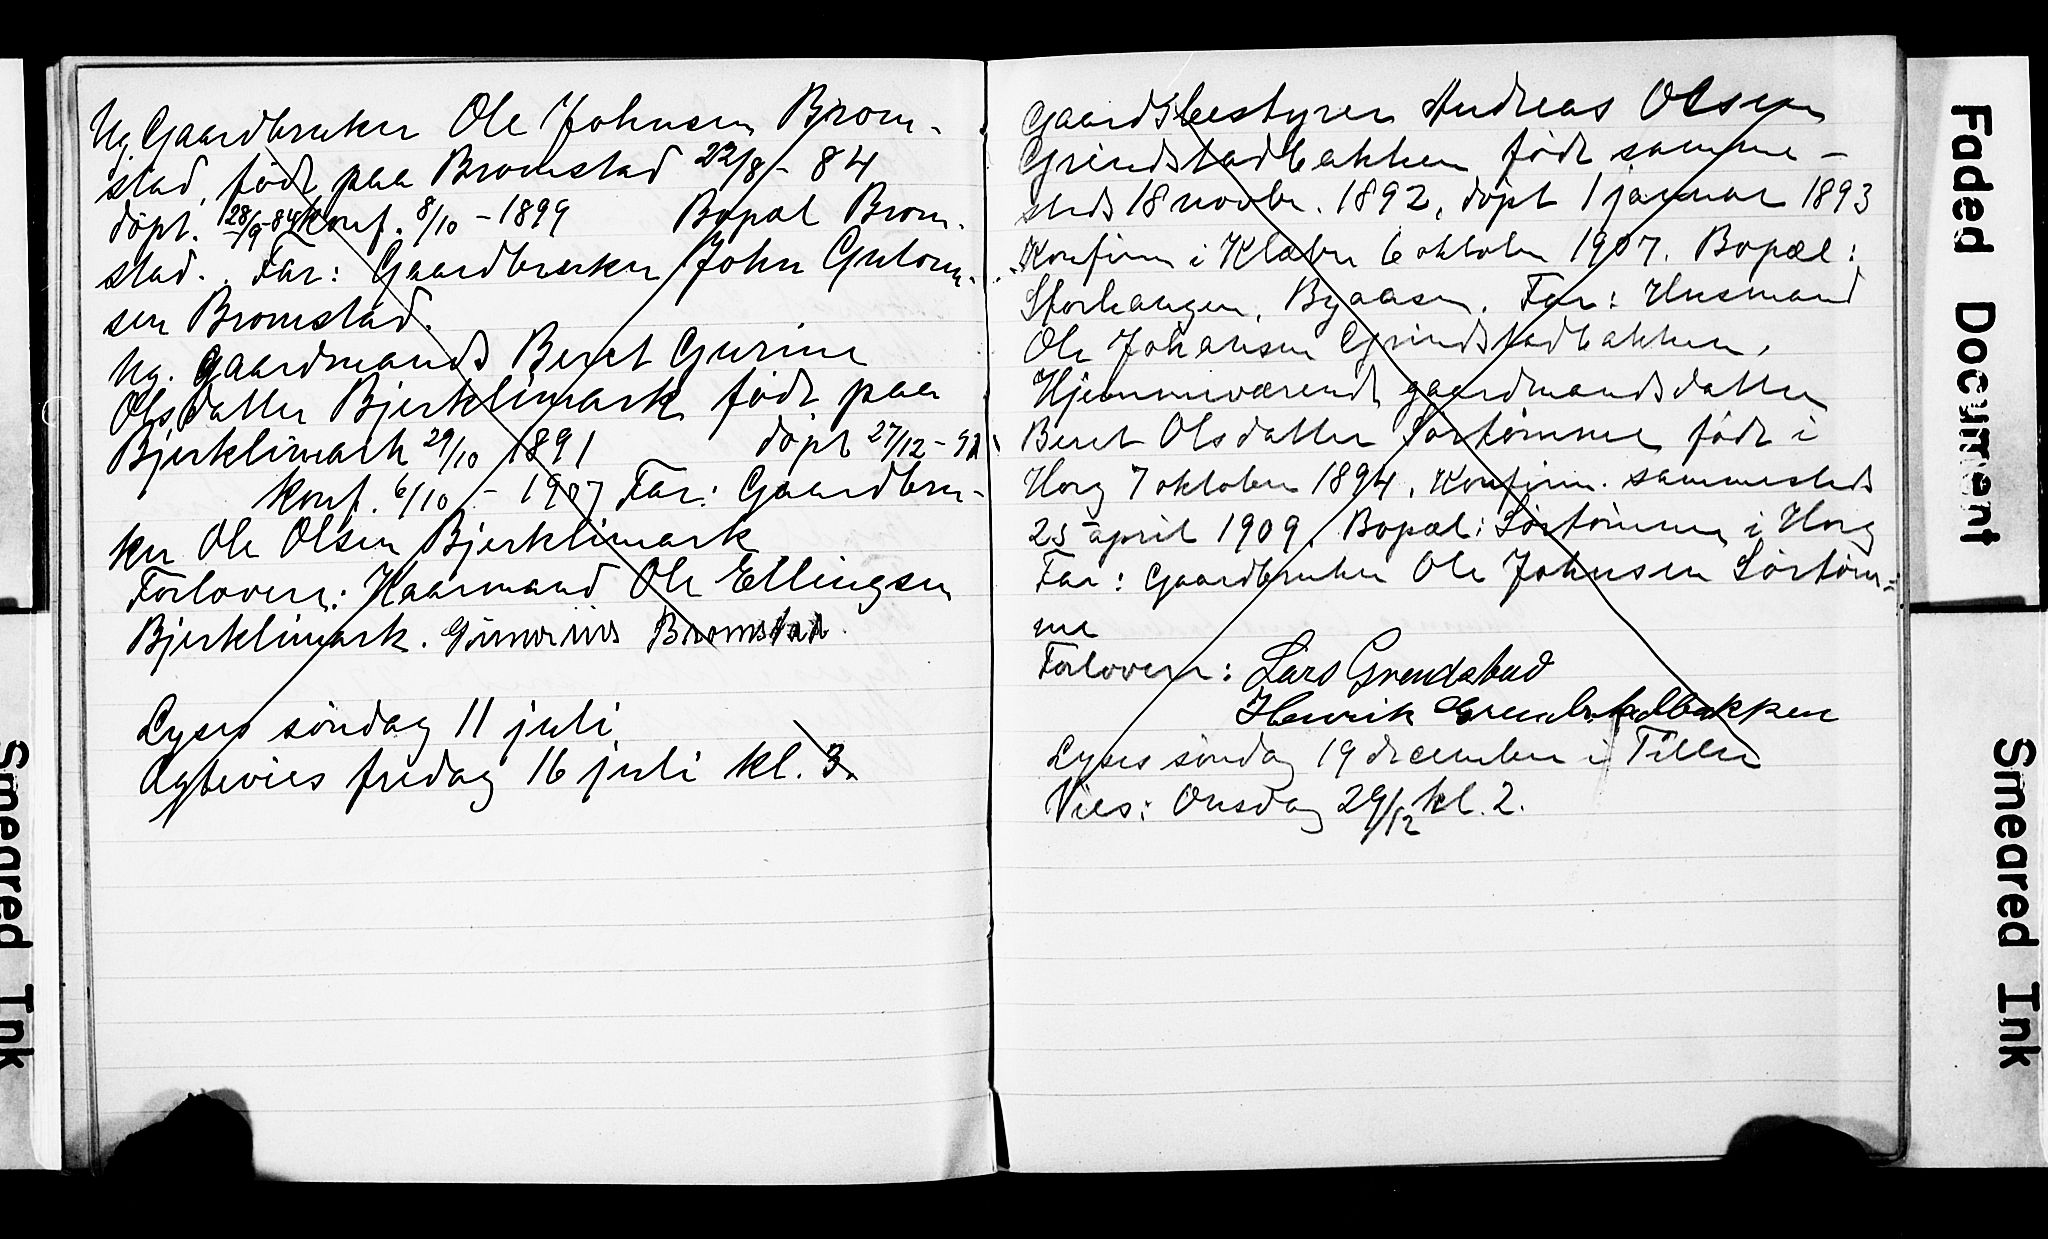 Ug. Gaardbruker Ole Johnsen Brom-
stad, födt paa Bromstad 22/8 - 84
döpt. 28/9-84 Konf. 8/10 - 1899 Bopæl Brom-
stad. Far: Gaardbruker John Gutorm-
sen Bromstad.
Ug. Gaardmands Beret Gurine
Olsdatter Bjerklimark födt paa
Bjerklimark 29/10 1891 döpt 27/12 - 91
Konf. 6/10 - 1907 Far: Gaardbru-
ker Ole Olsen Bjerklimark
Forlovere: Kaarmand Ole Ellingsen
Bjerklimark. Gunerius Bromstad.
Lyses söndag 11 juli
Ægtevies fredag 16 juli kl. 3.
Gaardsbestyrer Andreas Olsen
Grindstadbakken födt samme-
steds 18 novbr. 1892, döpt 1 januar 1893
Konfirm i Klæbu 6 oktober 1907. Bopæl:
Storhaugen, Byaasen. Far: Husmand
Ole Johansen Grindstadbakken,
Hjemmeværende gaardmandsdatter
Beret Olsdatter Sörtömme födt i
Horg 7 oktober 1894, Konfirm. sammesteds
25 april 1909. Bopæl: Sörtömme i Horg
Far: Gaardbruker Ole Johnsen Sörtöm-
me
Forlovere: Lars Grendstad
Henrik Grendstadbakken
Lyses söndag 19 december i Tiller
Vies: Onsdag 29/12 kl. 2.
Faded Document
Smeared Ink
Smeared Ink